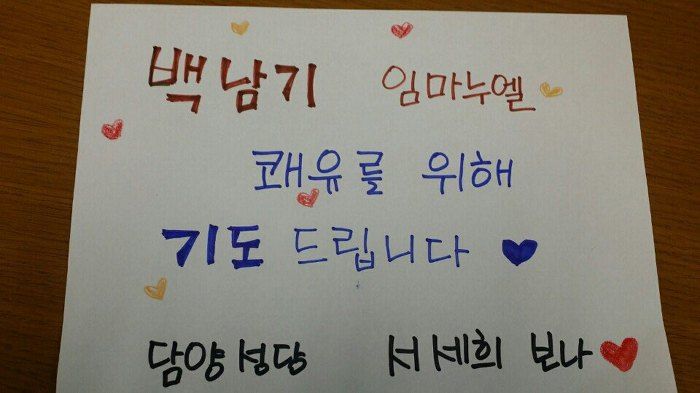 백남기 임마누엘
쾌유를 위해
기도 드립니다
담양성당 서세희 보나